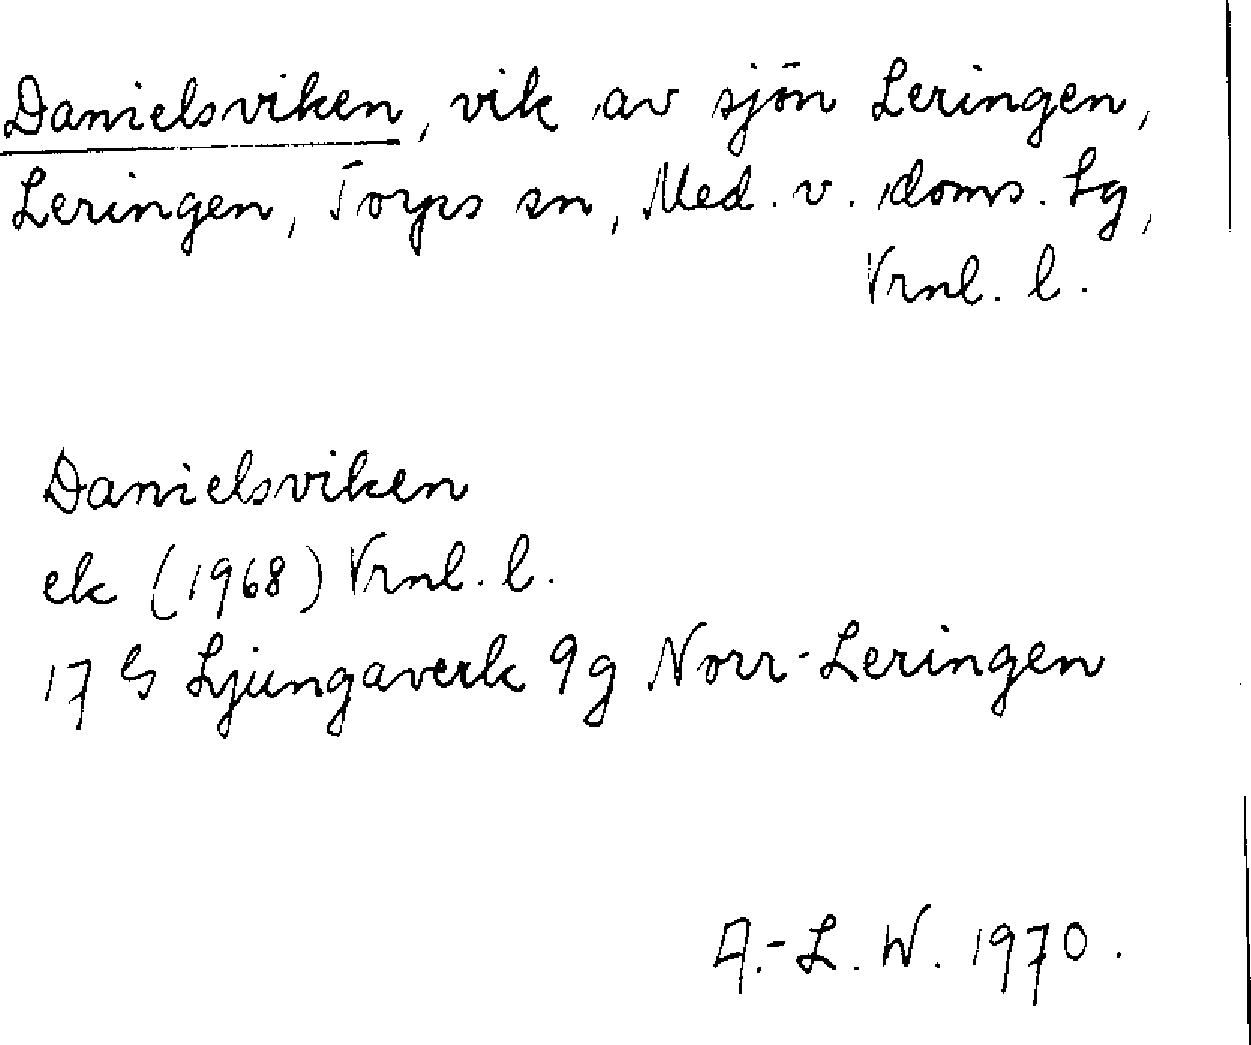 Danielsviken, vik av sjön Leringen,
Leringen, Torps sn, Med. v. doms. tg,
Vrnl. l.
Danielsviken
ek (1968) Vrnl. l.
17 G Ljungaverk 9g Norr-Leringen
A.-L. W. 1970.